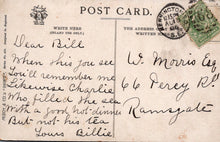 POST CARD.
WRITE HERE
THE ADDRESS
Dear Bill
When this you see
You'll remember me
Likewise Charlie
Who filled the sea
With a good hot dinner
But not his tea
Yours Billie
W Morris Esq
66 Percy Rd
Ramsgate